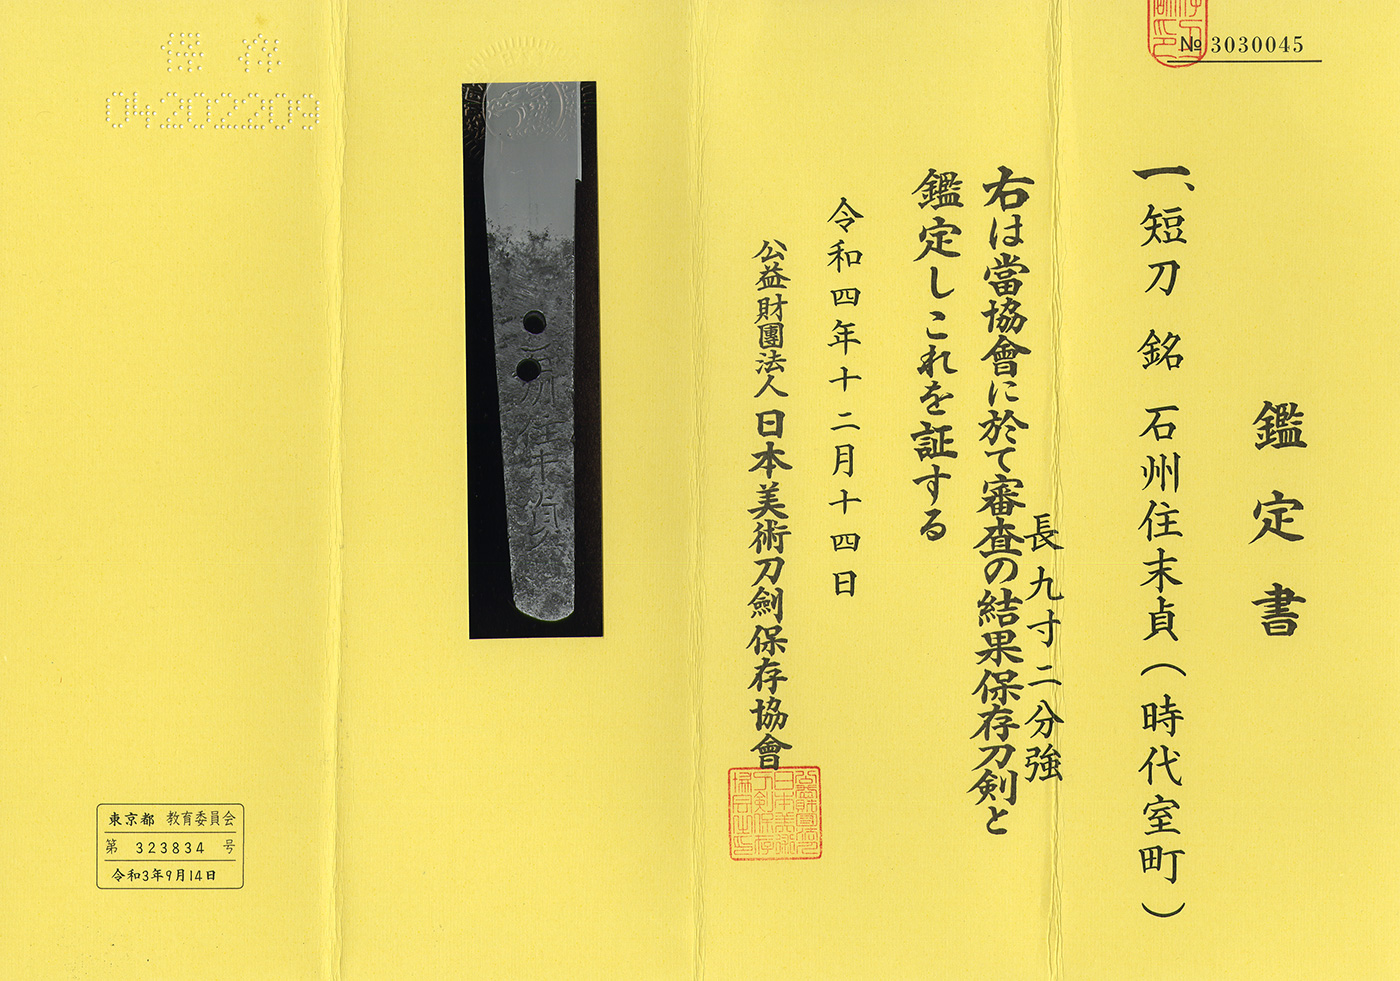 № 3030045
鑑定書
一、短刀 銘 石州住末貞(時代室町)
長九寸二分強
右は當協會に於て審査の結果保存刀剣と
鑑定しこれを証する
令和四年十二月十四日
公益財團法人日本美術刀劍保存協會
州住末貞
保存
04202209
東京都 教育委員会
第 323834 号
令和3年9月14日